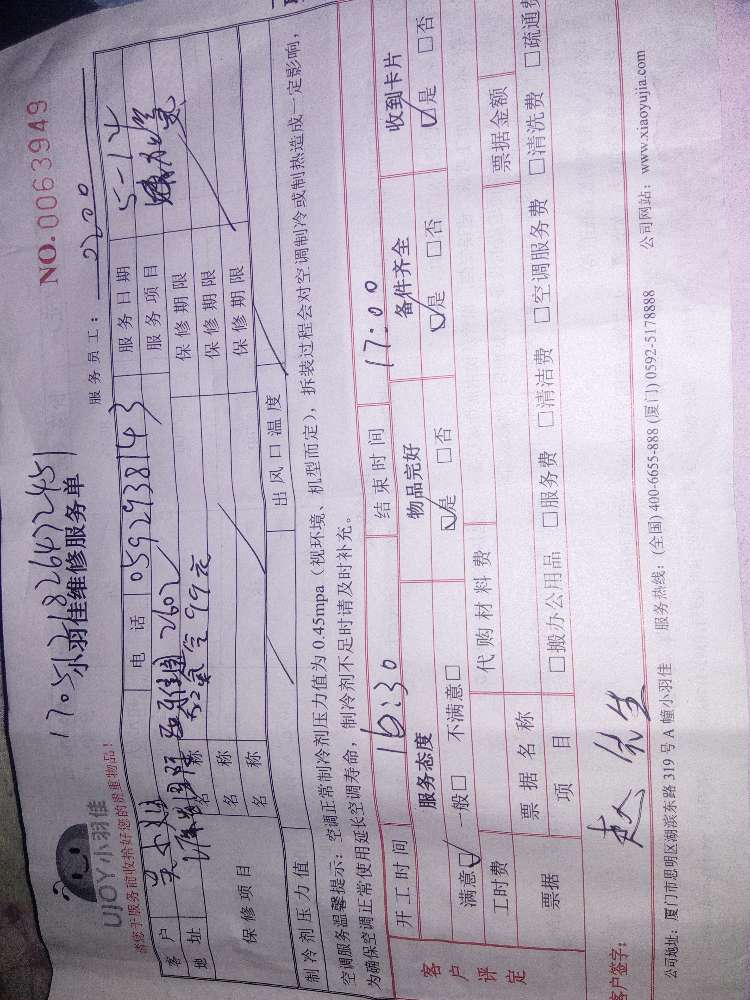 1705121826472451
NO.0063949
UJOY小羽佳
小羽佳维修服务单
请您于服务前收拾好您的贵重物品!
服务员工:
客户 吴小姐 电话 0592938143 服务日期 5-14
地址 2602 服务项目
保修项目 名称 99元 保修期限
名称 保修期限
名称 保修期限
制冷剂压力值 出风口温度
空调服务温馨提示:空调正常制冷剂压力值为0.45mpa(视环境、机型而定),拆装过程会对空调制冷或制热造成一定影响,
为确保空调正常使用延长空调寿命,制冷剂不足时请及时补充。
开工时间 16:30 结束时间 17:00
客户评定 服务态度 物品完好 备件齐全 收到卡片
满意☑ 一般□ 不满意□ ☑是 □否 ☑是 □否 ☑是 □否
工时费 代购材料费
票据 票据名称 票据金额
项目 □搬办公用品 □服务费 □清洁费 □空调服务费 □清洗费 □疏通费
客户签字: 赵先生
公司地址:厦门市思明区湖滨东路319号A幢小羽佳 服务热线:(全国)400-6655-888 (厦门)0592-5178888 公司网站:www.xiaoyujia.com